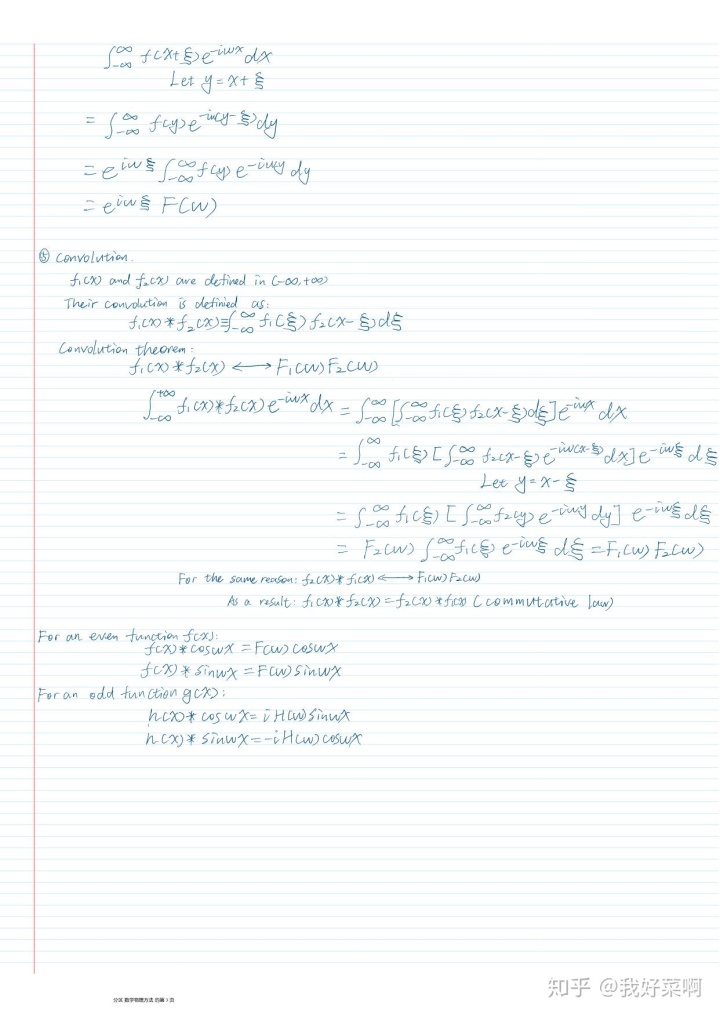 ∫_{-∞}^{∞} f(x+ξ)e^{-iωx}dx
Let y=x+ξ
= ∫_{-∞}^{∞} f(y)e^{-iω(y-ξ)}dy
= e^{iωξ} ∫_{-∞}^{∞} f(y) e^{-iωy} dy
= e^{iωξ} F(ω)
⑤ Convolution.
f₁(x) and f₂(x) are defined in (-∞,+∞)
Their convolution is definied as:
f₁(x)*f₂(x)≡∫_{-∞}^{∞} f₁(ξ)f₂(x-ξ)dξ
Convolution theorem:
f₁(x)*f₂(x) ⟷ F₁(ω)F₂(ω)
∫_{-∞}^{+∞} f₁(x)*f₂(x)e^{-iωx}dx = ∫_{-∞}^{∞} [∫_{-∞}^{∞} f₁(ξ)f₂(x-ξ)dξ]e^{-iωx} dx
= ∫_{-∞}^{∞} f₁(ξ)[∫_{-∞}^{∞} f₂(x-ξ)e^{-iω(x-ξ)}dx]e^{-iωξ}dξ
Let y=x-ξ
= ∫_{-∞}^{∞} f₁(ξ)[∫_{-∞}^{∞} f₂(y)e^{-iωy}dy] e^{-iωξ}dξ
= F₂(ω) ∫_{-∞}^{∞} f₁(ξ) e^{-iωξ} dξ =F₁(ω)F₂(ω)
For the same reason: f₂(x)*f₁(x)⟷F₁(ω)F₂(ω)
As a result: f₁(x)*f₂(x)=f₂(x)*f₁(x) (commutative law)
For an even function f(x):
f(x)*cosωx=F(ω)cosωx
f(x)*sinωx=F(ω)sinωx
For an odd function g(x):
h(x)*cosωx=iH(ω)sinωx
h(x)*sinωx=-iH(ω)cosωx
知乎 @我好菜啊
分区 数学物理方法 的第 3 页